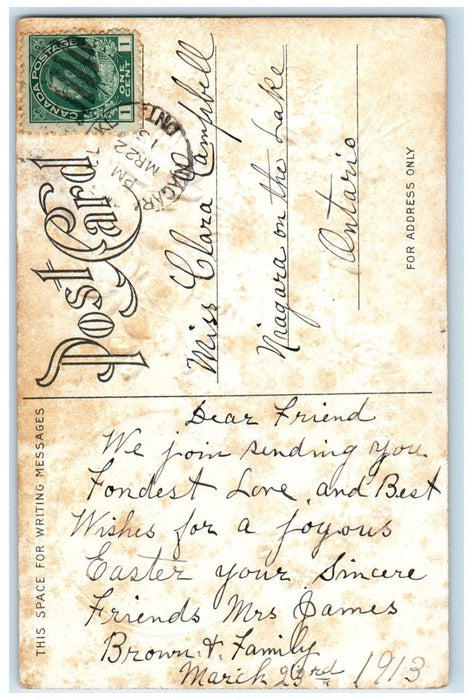 CANADA POSTAGE
1 ONE CENT 1
PM
MR 22
13
ONT
Post Card
Miss Clara Campbell
Niagara on the Lake
Ontario
FOR ADDRESS ONLY
THIS SPACE FOR WRITING MESSAGES
Dear Friend
We join sending you
Fondest Love and Best
Wishes for a joyous
Easter your Sincere
Friends Mrs James
Brown & Family
March 23rd 1913